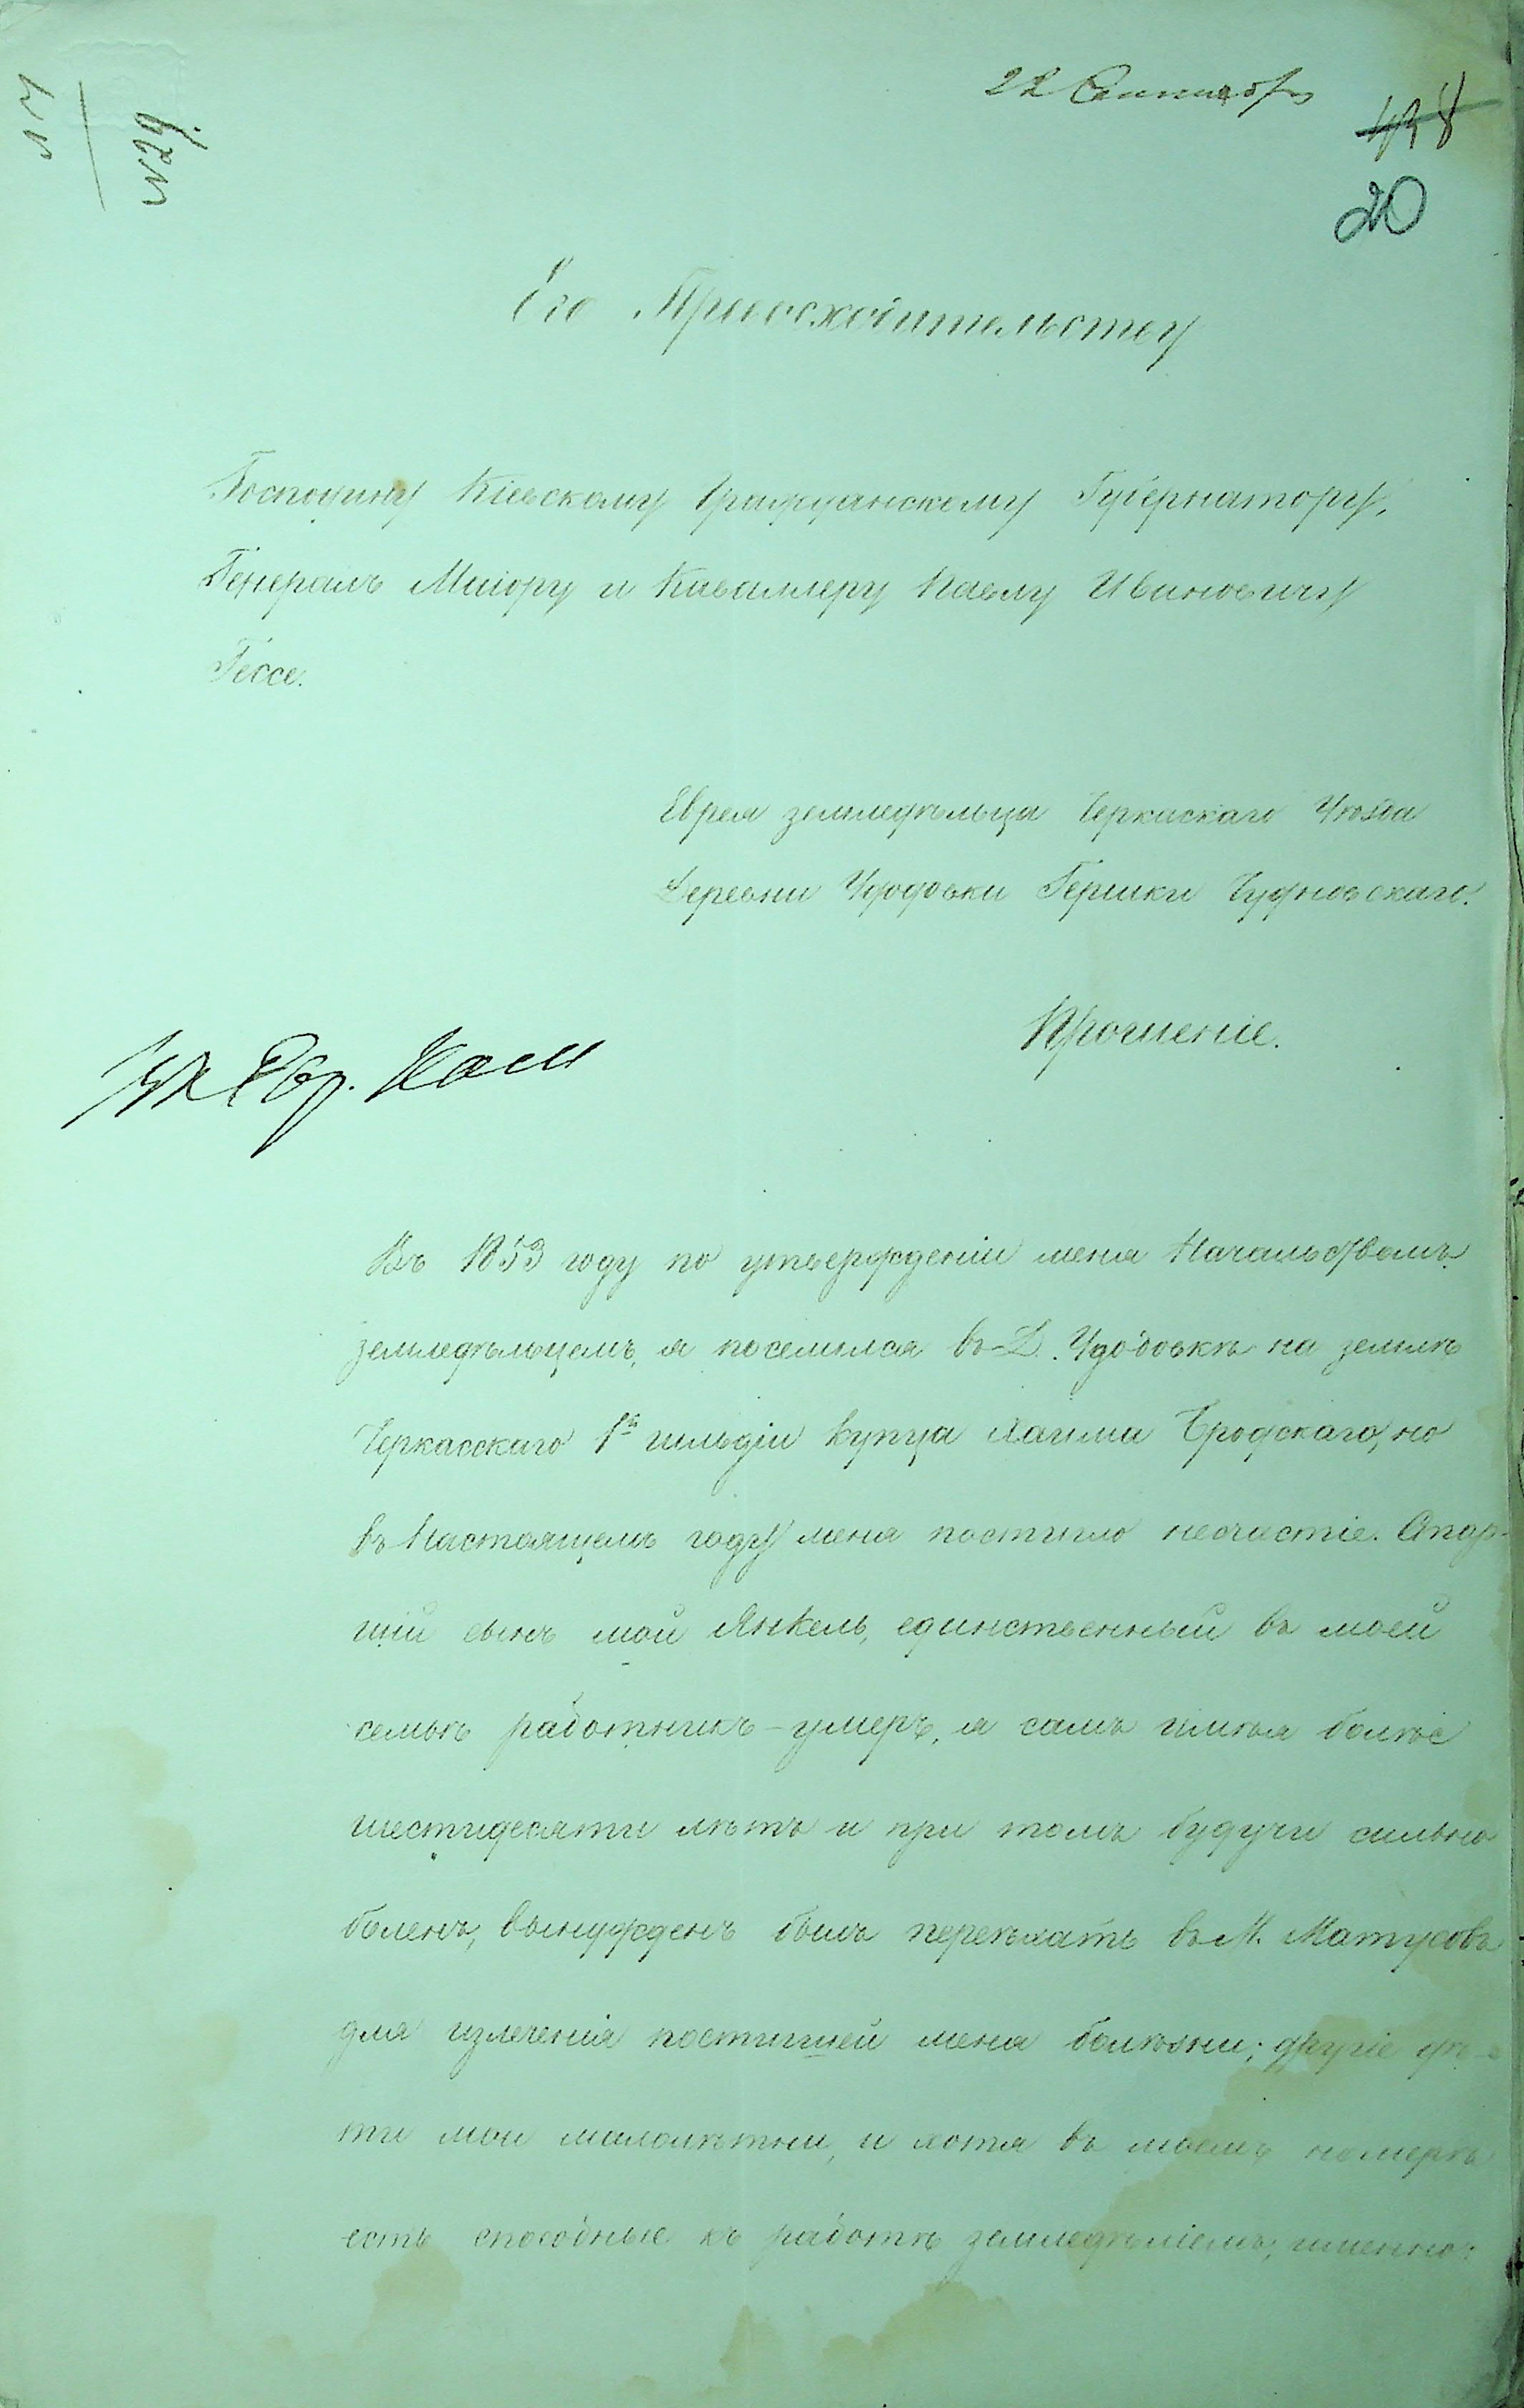 22 Сентября
438
20
Его Превосходительству
Господину Кіевскому Гражданскому Губернатору,
Генералъ Маіору и Кавалеру Павлу Ивановичу
Гессе.
Еврея земледѣльца Черкаскаго Уѣзда
Деревни Удодовки Гершки Чудновскаго.
Прошеніе.
Въ 1853 году по утвержденіи меня Начальствомъ
земледѣльцемъ, я поселился въ Д. Удодовкѣ на землѣ
Черкасскаго 1й гильдіи купца Хаима Бродскаго, но
въ Настоящемъ году меня постигло несчастіе. Стар-
шій сынъ мой Янкель, единственный въ моей
семьѣ работникъ - умеръ, я самъ имѣя болѣе
шестидесяти лѣтъ и при томъ будучи сильно
боленъ, вынужденъ былъ переѣхать въ М. Матусовъ
для излеченія постигшей меня болѣзни; другіе дѣ-
ти мои малолѣтни, и хотя въ моемъ номерѣ
есть способные къ работѣ земледѣліемъ; именно: